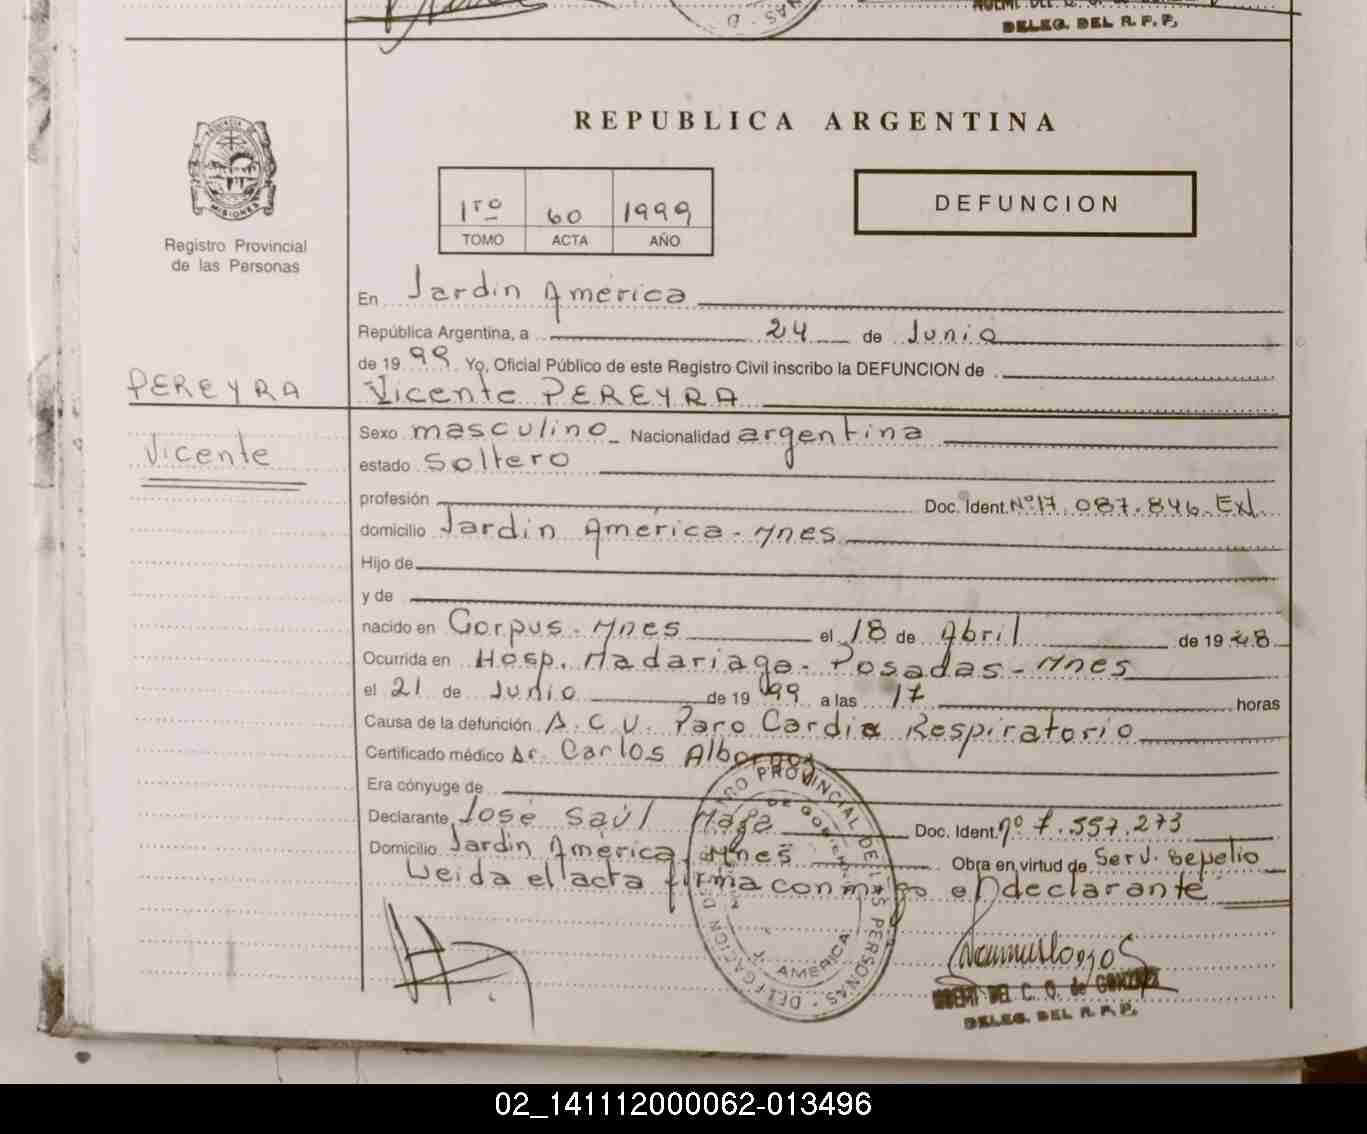 DELEG. DEL R. P. P.
REPUBLICA ARGENTINA
PROVINCIA DE
MISIONES
Registro Provincial
de las Personas
1ro 60 1999
TOMO ACTA AÑO
DEFUNCION
En Jardin América
República Argentina, a 24 de Junio
de 1999 Yo, Oficial Público de este Registro Civil inscribo la DEFUNCION de
PEREYRA Vicente PEREYRA
Sexo masculino Nacionalidad argentina
Vicente
estado Soltero
profesión Doc. Ident. Nº 17.087.846. Ext.
domicilio Jardin América - Mnes
Hijo de
y de
nacido en Corpus - Mnes el 18 de Abril de 19
Ocurrida en Hosp. Madariaga - Posadas - Mnes
el 21 de Junio de 1999 a las 17 horas
Causa de la defunción A.C.V. Paro Cardio Respiratorio
Certificado médico Dr. Carlos
Era cónyuge de
Declarante José Saúl Doc. Ident. nº 7.557.273
Domicilio Jardin América, Mnes Obra en virtud de Serv. Sepelio
Leida el acta firma conmigo el declarante
REGISTRO PROVINCIAL DE LAS PERSONAS - DELEGACION
J. AMERICA
NOEMI DEL C. O. de GONZALEZ
DELEG. DEL R. P. P.
02_141112000062-013496